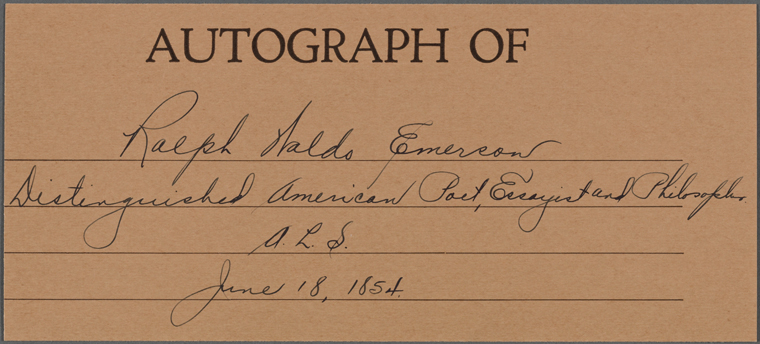 AUTOGRAPH OF
Ralph Waldo Emerson
Distinguished American Poet, Essayist and Philosopher.
A. L. S.
June 18, 1854.